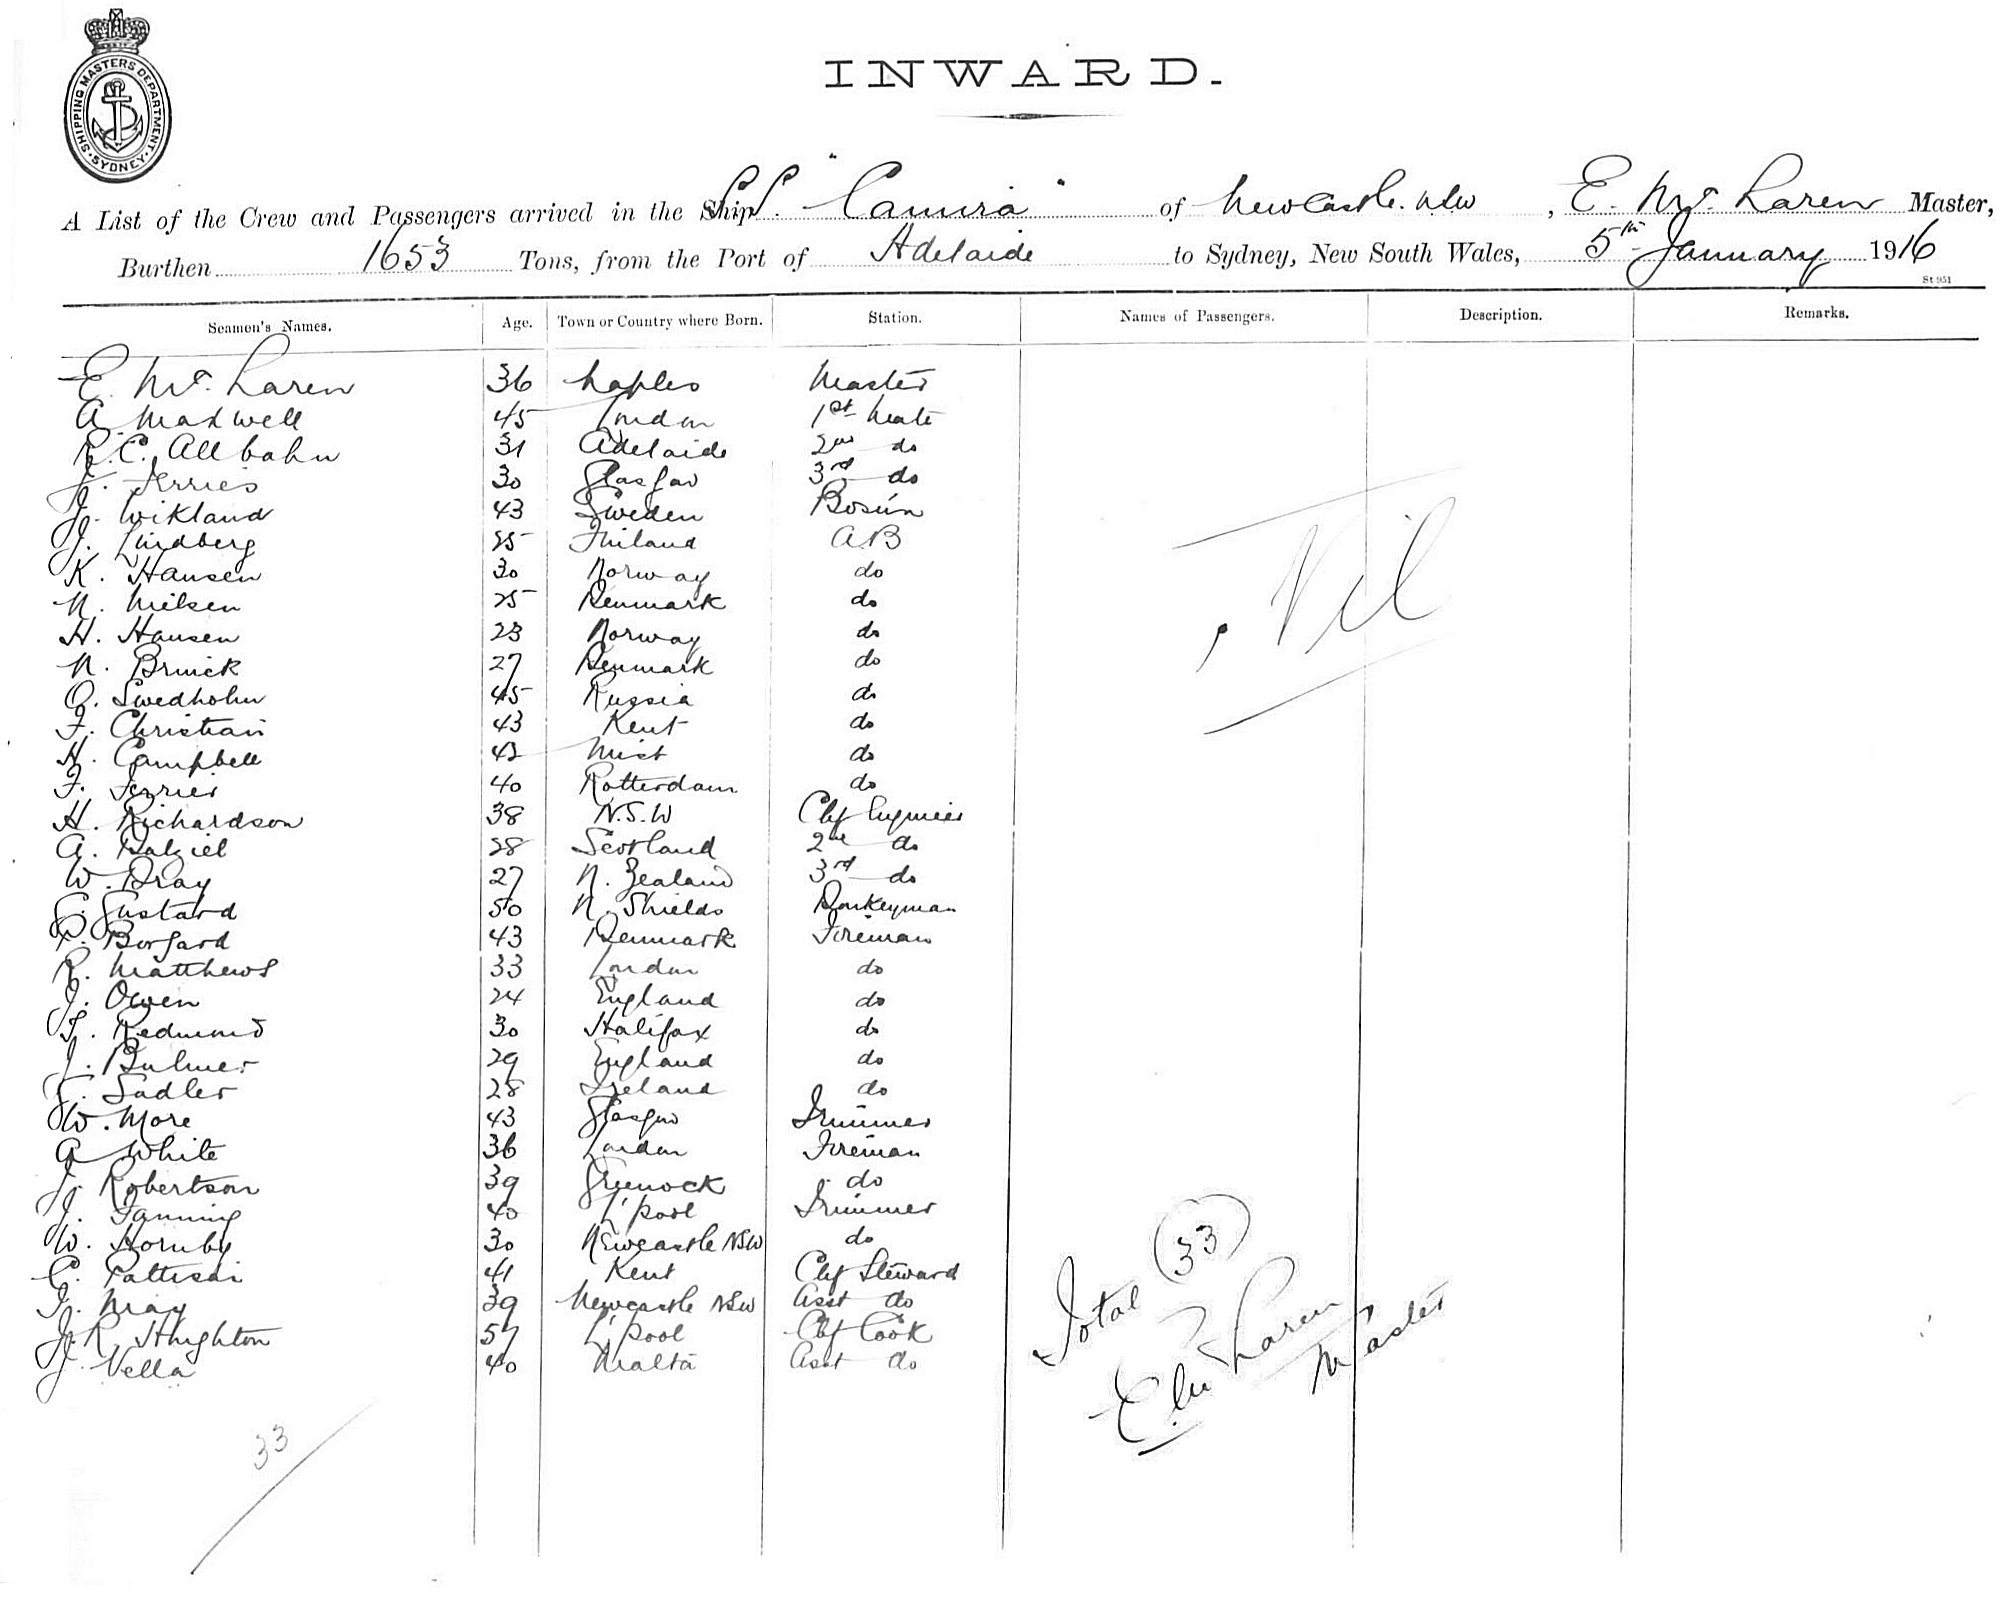 SHIPPING MASTERS DEPARTMENT
SYDNEY
INWARD.
A List of the Crew and Passengers arrived in the Ship S.S. "Camira" of Newcastle. NSW, E. Mc. Laren Master,
Burthen 1653 Tons, from the Port of Adelaide to Sydney, New South Wales, 5th January 1916
St 951
Seamen's Names. Age. Town or Country where Born. Station. Names of Passengers. Description. Remarks.
E. Mc. Laren 36 Naples Master
A. Maxwell 45 London 1st Mate
R.C. Allbahn 31 Adelaide 2nd do
J. Ferries 30 Glasgow 3rd do
J. Wikland 43 Sweden Bosun
J. Lindberg 25 Finland A.B
K. Hansen 30 Norway do
N. Nielsen 25 Denmark do
H. Hansen 23 Norway do
N. Bruick 27 Denmark do
O. Swedholm 45 Russia do
F. Christian 43 Kent do
H. Campbell 42 do
F. Ferrier 40 Rotterdam do
H. Richardson 38 N.S.W Chf Engineer
A. Dalziel 28 Scotland 2nd do
W. Bray 27 N. Zealand 3rd do
Gustard 50 N. Shields Donkeyman
P. Borgard 43 Denmark Fireman
R. Matthews 33 London do
J. Owen 24 England do
T. Redmond 30 Halifax do
J. Bulmer 29 England do
Sadler 28 Ireland do
W. More 43 Glasgow Trimmer
A White 36 London Fireman
J. Robertson 39 Greenock do
J. Fanning 40 L'pool Trimmer
W. Hornby 30 Newcastle NSW do
C. Pattison 41 Kent Chf Steward
J. May 39 Newcastle NSW Asst do
J.R. Hughton 57 L'pool Chf Cook
J. Vella 40 Malta Asst do
Nil
Total 33
E Mc Laren
Master
33